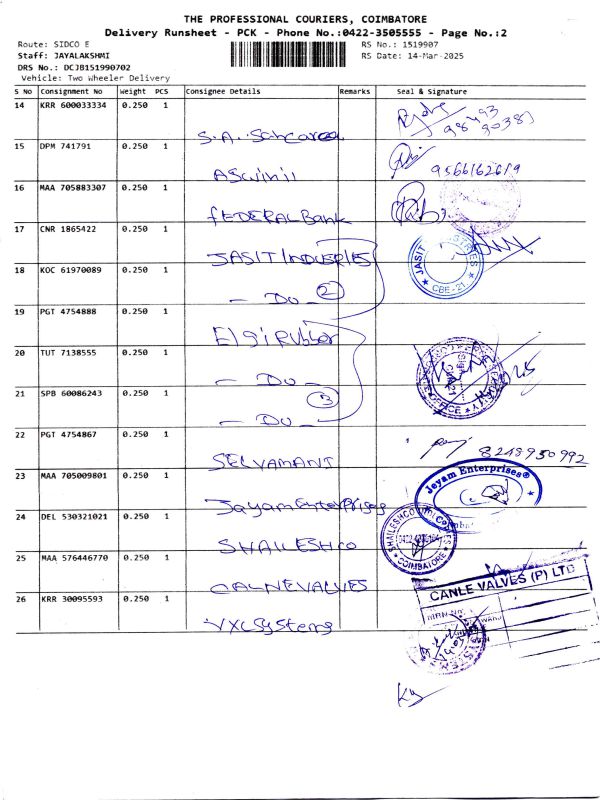 THE PROFESSIONAL COURIERS, COIMBATORE
Delivery Runsheet - PCK - Phone No.:0422-3505555 - Page No.:2
Route: SIDCO E
RS No.: 1519907
Staff: JAYALAKSHMI
RS Date: 14-Mar-2025
DRS No.: DCJB151990702
Vehicle: Two Wheeler Delivery
S No Consignment No Weight PCS Consignee Details Remarks Seal & Signature
14 KRR 600033334 0.250 1
S.A.
15 DPM 741791 0.250 1
9566162619
Aswinii
16 MAA 705883307 0.250 1
FEDERAL Bank
17 CNR 1865422 0.250 1
JASIT INDUSTRIES
JASIT
CBE-21
18 KOC 61970089 0.250 1
- Do - 2
19 PGT 4754888 0.250 1
Elgi Rubber
20 TUT 7138555 0.250 1
- Do -
21 SPB 60086243 0.250 1
3
- Do -
22 PGT 4754867 0.250 1
8248950992
SELVAMANI
23 MAA 705009801 0.250 1
Jeyam Enterprises®
Jayam Enterprises
24 DEL 530321021 0.250 1
SHAILESHCO
COIMBATORE
25 MAA 576446770 0.250 1
CALNEVALVES
CANLE VALVES (P) LTD
26 KRR 30095593 0.250 1
VXL Systems